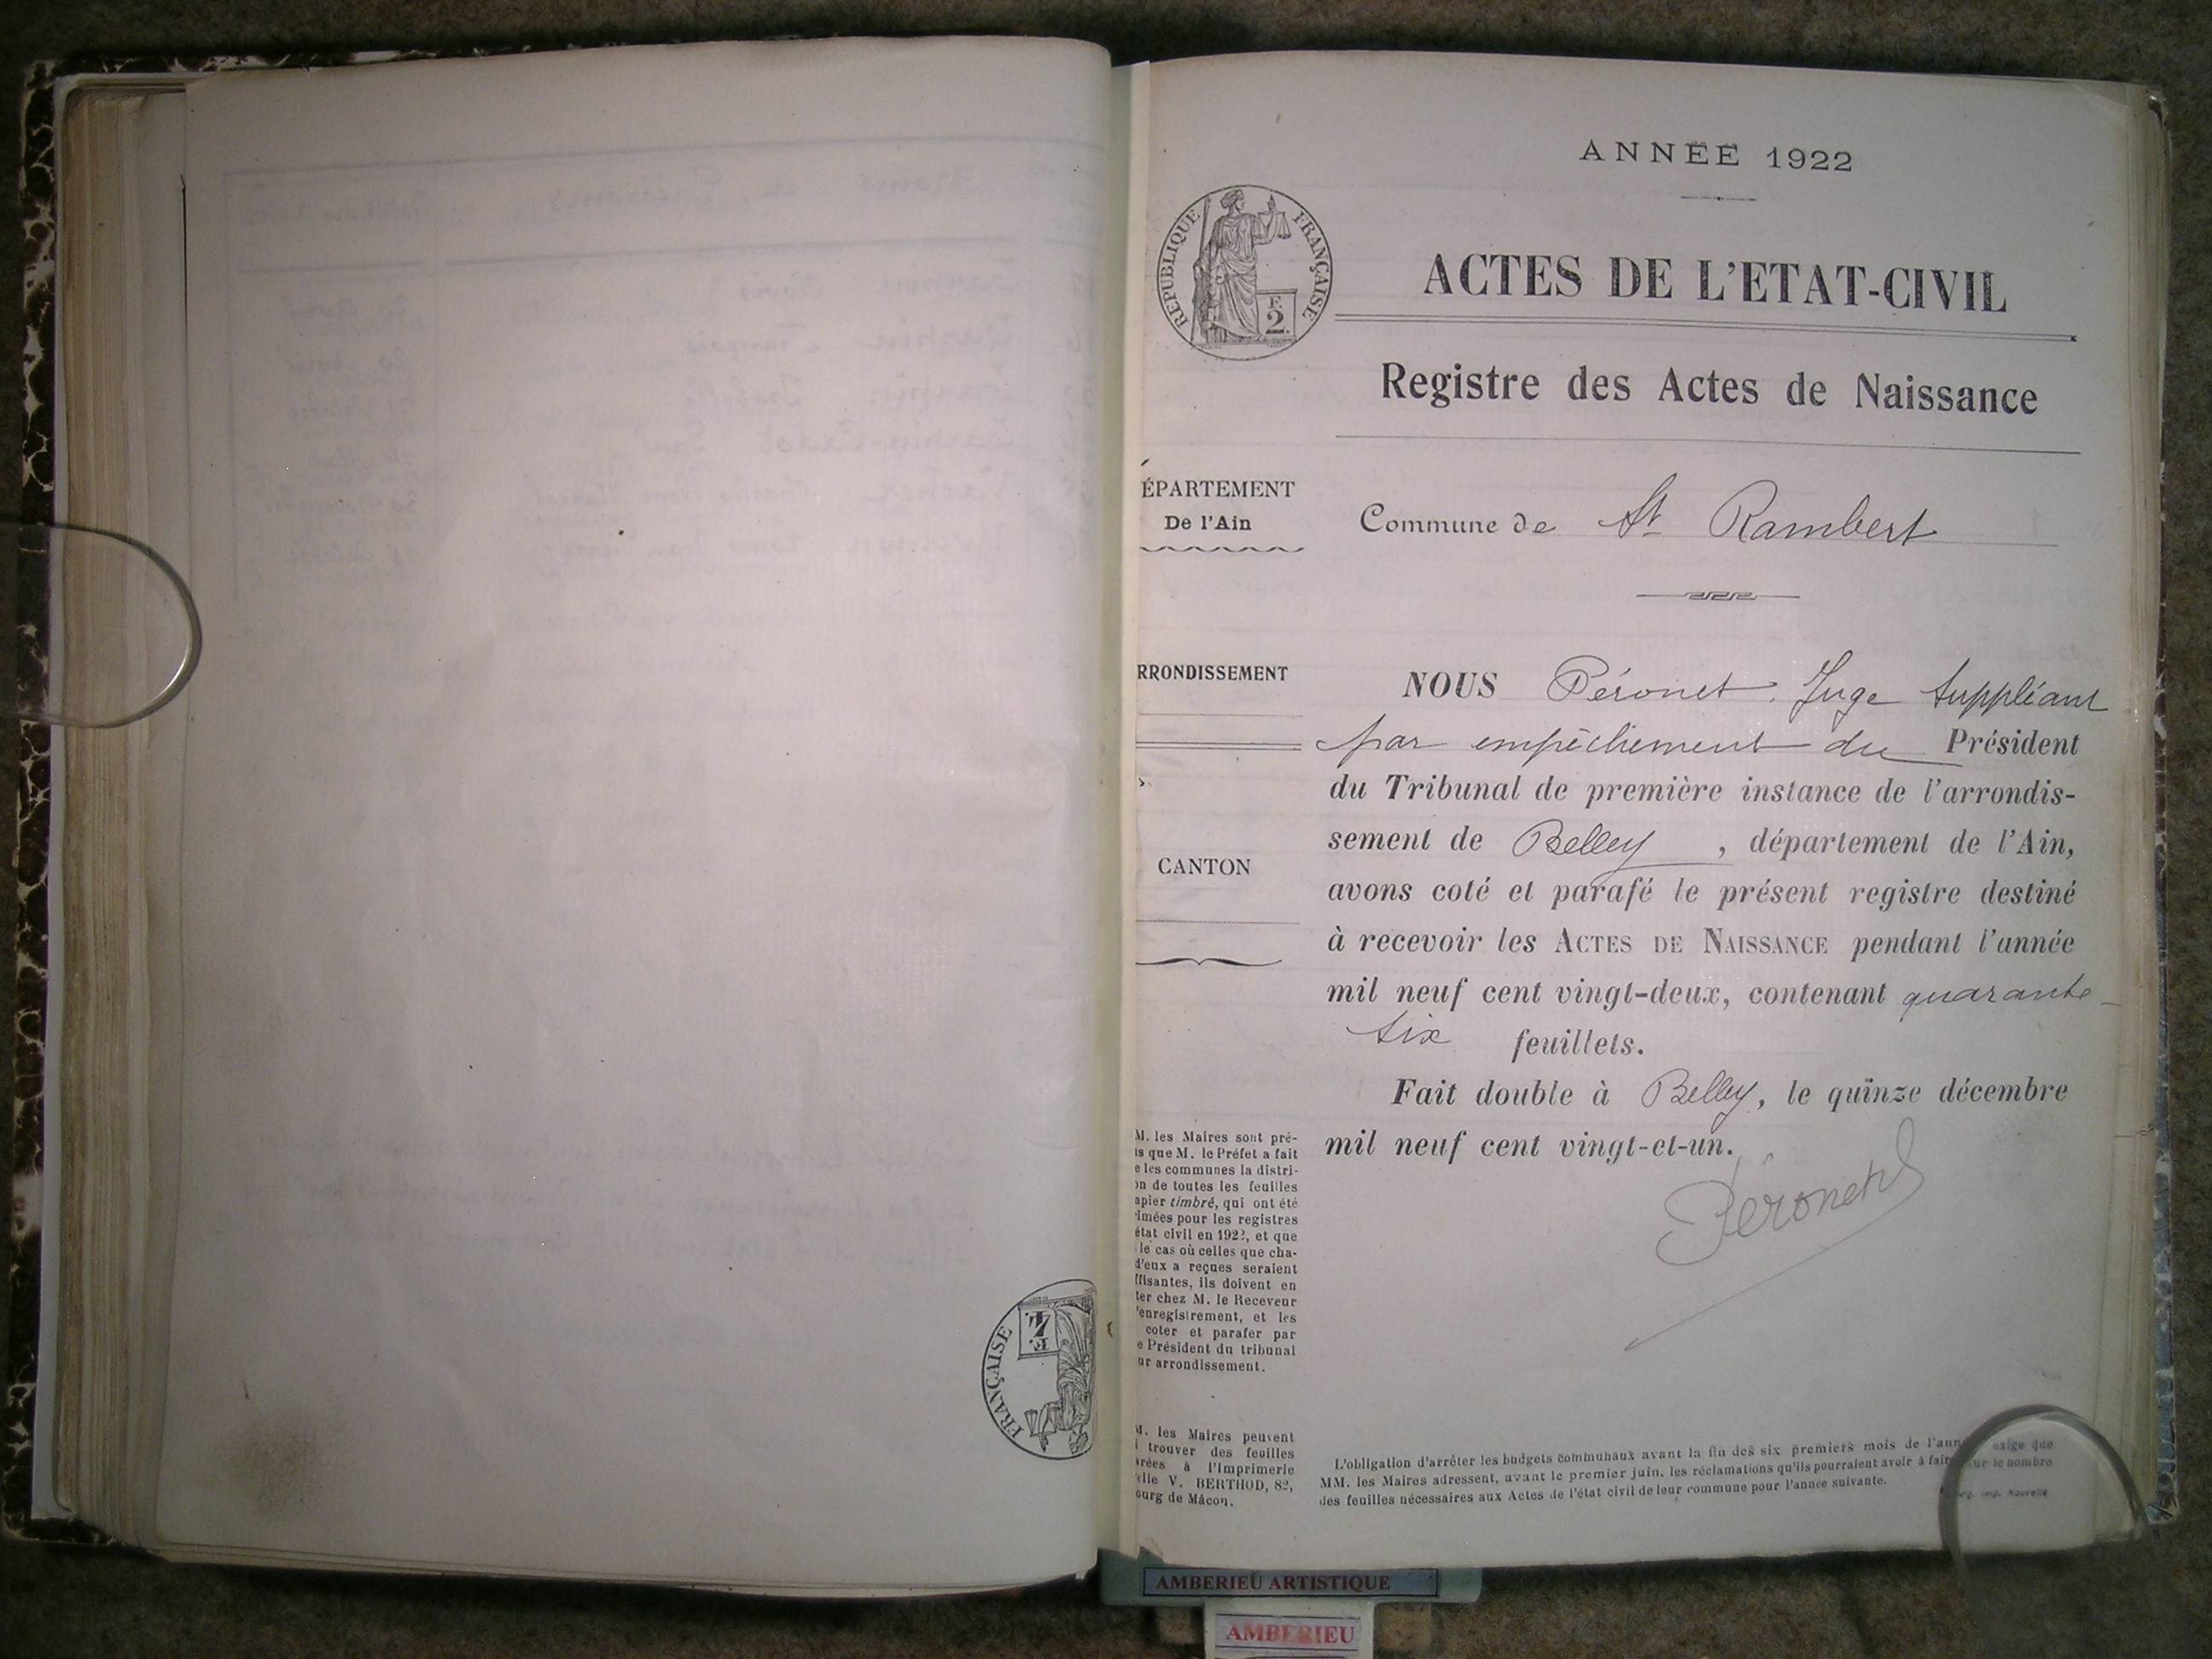 ANNÉE 1922
RÉPUBLIQUE FRANÇAISE
F.
2.
ACTES DE L'ETAT-CIVIL
Registre des Actes de Naissance
ÉPARTEMENT
De l'Ain
Commune de St Rambert
RRONDISSEMENT
CANTON
NOUS Péronet, Juge Suppléant
par empêchement du Président
du Tribunal de première instance de l'arrondis-
sement de Belley, département de l'Ain,
avons coté et parafé le présent registre destiné
à recevoir les ACTES DE NAISSANCE pendant l'année
mil neuf cent vingt-deux, contenant quarante-
six feuillets.
Fait double à Belley, le quinze décembre
mil neuf cent vingt-et-un.
Péronet
M. les Maires sont pré-
is que M. le Préfet a fait
e les communes la distri-
on de toutes les feuilles
apier timbré, qui ont été
imées pour les registres
état civil en 1922, et que
le cas où celles que cha-
d'eux a reçues seraient
ffisantes, ils doivent en
ter chez M. le Receveur
'enregistrement, et les
coter et parafer par
e Président du tribunal
ur arrondissement.
M. les Maires peuvent
trouver des feuilles
rées à l'Imprimerie
elle V. BERTHOD, 82,
ourg de Mâcon.
L'obligation d'arrêter les budgets communaux avant la fin des six premiers mois de l'ann exige que
MM. les Maires adressent, avant le premier juin, les réclamations qu'ils pourraient avoir à fair sur le nombre
des feuilles nécessaires aux Actes de l'état civil de leur commune pour l'année suivante.
Imp. Nouvelle
FRANÇAISE
F.
2.
AMBERIEU ARTISTIQUE
AMBERIEU